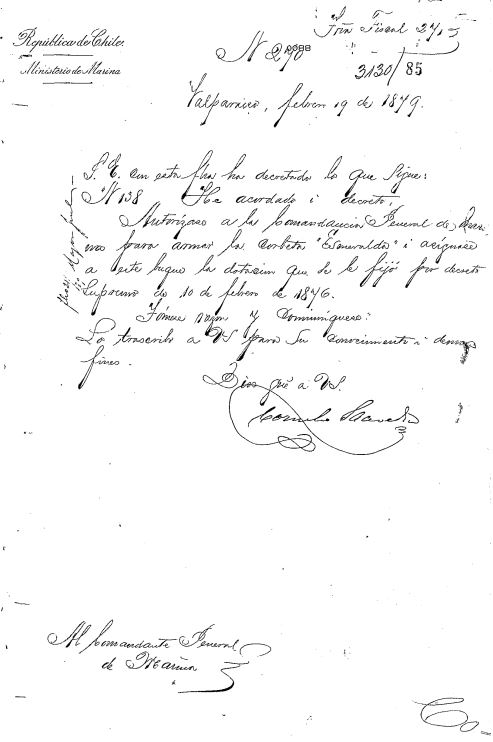 República de Chile
Ministerio de Marina
Trin Fiscal
N 290
3130/85
Valparaiso, febrero 19 de 1879.
S. E. con esta fha ha decretado lo que sigue:
N 138 He acordado i decreto,
Autorízase a la Comandancia Jeneral de Mari
na para armar la corbeta "Esmeralda" i asignase
a este buque la dotacion que se le fijó por decreto
Supremo de 10 de febrero de 1876.
Tómese razon y Comuníquese:
Lo trascribo a VS para su conocimiento i demas
fines.
Dios gue a VS.
Cornelio Saavedra
Al Comandante Jeneral
de Marina